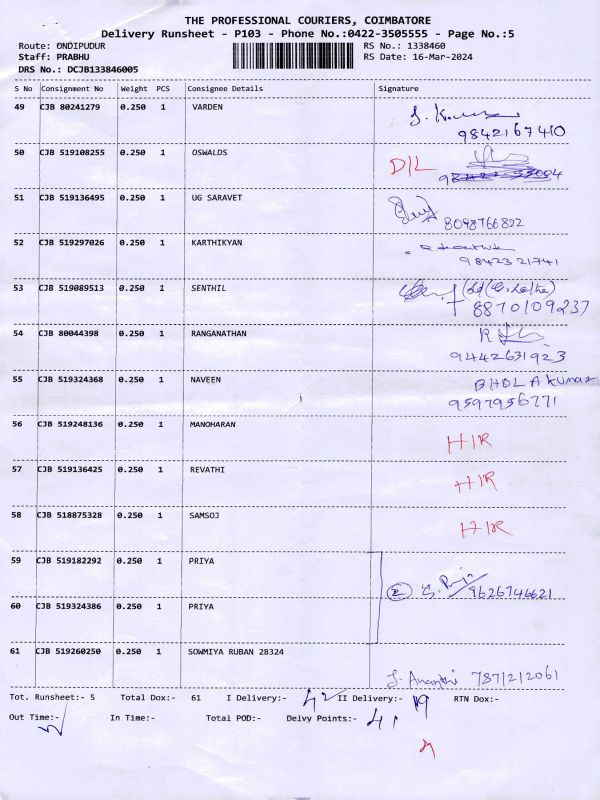 THE PROFESSIONAL COURIERS, COIMBATORE
Delivery Runsheet - P103 - Phone No.:0422-3505555 - Page No.:5
Route: ONDIPUDUR RS No.: 1338460
Staff: PRABHU RS Date: 16-Mar-2024
DRS No.: DCJB133846005
S No Consignment No Weight PCS Consignee Details Signature
49 CJB 80241279 0.250 1 VARDEN
9842167410
50 CJB 519108255 0.250 1 OSWALDS D/L
51 CJB 519136495 0.250 1 UG SARAVET
8098766822
52 CJB 519297026 0.250 1 KARTHIKYAN
9842321741
53 CJB 519089513 0.250 1 SENTHIL
8870109237
54 CJB 80044398 0.250 1 RANGANATHAN
9442631923
55 CJB 519324368 0.250 1 NAVEEN BHOLA Kumar
9597956771
56 CJB 519248136 0.250 1 MANOHARAN H/R
57 CJB 519136425 0.250 1 REVATHI H/R
58 CJB 518875328 0.250 1 SAMSOJ H/R
59 CJB 519182292 0.250 1 PRIYA
② 9626746621
60 CJB 519324386 0.250 1 PRIYA
61 CJB 519260250 0.250 1 SOWMIYA RUBAN 28324
J. Ananthi 7871212061
Tot. Runsheet:- 5 Total Dox:- 61 I Delivery:- 42 II Delivery:- 19 RTN Dox:-
Out Time:- In Time:- Total POD:- Delvy Points:- 41